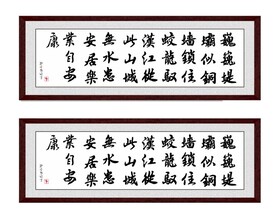 巍巍堤
壩似銅
墙鎖住
蛟龍馭
漢江從
此山城
無水患
安居樂
業自安
康
巍巍堤
壩似銅
墙鎖住
蛟龍馭
漢江從
此山城
無水患
安居樂
業自安
康